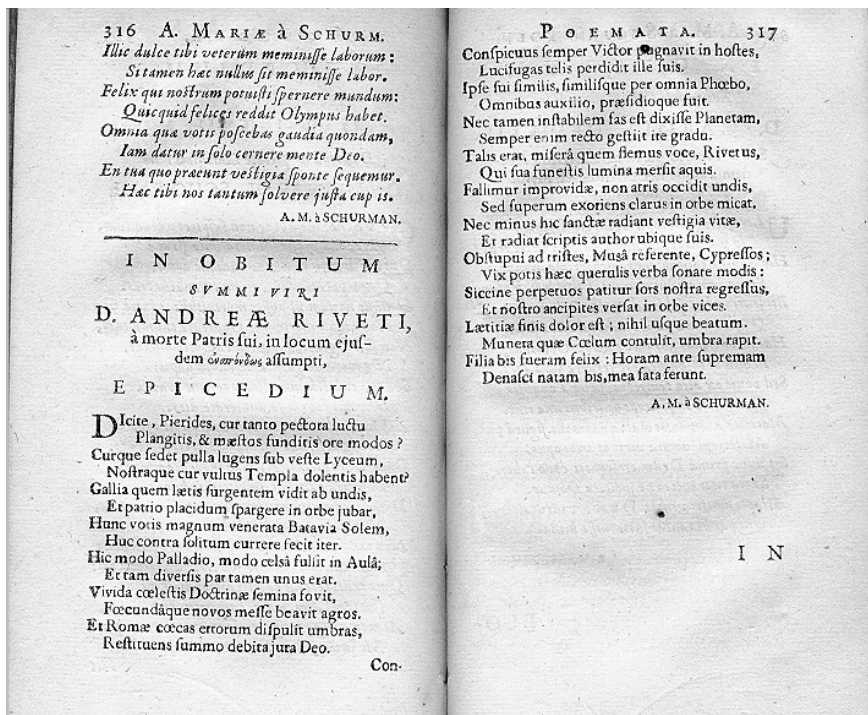 316 A. MARIÆ à SCHURM.
Illic dulce tibi veterum meminiſſe laborum :
Si tamen hæc nullus ſit meminiſſe labor.
Felix qui noſtrum potuiſti ſpernere mundum:
Quicquid felices reddit Olympus habet.
Omnia quæ votis poſcebas gaudia quondam,
Iam datur in ſolo cernere mente Deo.
En tua quo præeunt veſtigia ſponte ſequemur.
Hæc tibi nos tantum ſolvere juſta cup is.
A. M. à SCHURMAN.
IN OBITUM
SVMMI VIRI
D. ANDREÆ RIVETI,
à morte Patris ſui, in locum ejuſ-
dem aſſumpti,
EPICEDIUM.
DIcite, Pierides, cur tanto pectora luctu
Plangitis, & mæſtos funditis ore modos ?
Curque ſedet pulla lugens ſub veſte Lyceum,
Noſtraque cur vultus Templa dolentis habent?
Gallia quem lætis ſurgentem vidit ab undis,
Et patrio placidum ſpargere in orbe jubar,
Hunc votis magnum venerata Batavia Solem,
Huc contra ſolitum currere fecit iter.
Hic modo Palladio, modo celsâ fulſit in Aulâ;
Et tam diverſis par tamen unus erat.
Vivida cœleſtis Doctrinæ ſemina fovit,
Fœcundâque novos meſſe beavit agros.
Et Romæ cœcas errorum diſpulit umbras,
Reſtituens ſummo debita jura Deo.
Con-
POEMATA. 317
Conſpicuus ſemper Victor pugnavit in hoſtes,
Lucifugas telis perdidit ille ſuis.
Ipſe ſui ſimilis, ſimiliſque per omnia Phœbo,
Omnibus auxilio, præſidioque fuit.
Nec tamen inſtabilem fas eſt dixiſſe Planetam,
Semper enim recto geſtiit ire gradu.
Talis erat, miſerâ quem flemus voce, Rivetus,
Qui ſua funeſtis lumina merſit aquis.
Fallimur improvidæ, non atris occidit undis,
Sed ſuperum exoriens clarus in orbe micat.
Nec minus hîc ſanctæ radiant veſtigia vitæ,
Et radiat ſcriptis author ubique ſuis.
Obſtupui ad triſtes, Musâ referente, Cypreſſos ;
Vix potis hæc querulis verba ſonare modis :
Siccine perpetuos patitur ſors noſtra regreſſus,
Et noſtro ancipites verſat in orbe vices.
Lætitiæ finis dolor eſt ; nihil uſque beatum.
Munera quæ Cœlum contulit, umbra rapit.
Filia bis fueram felix : Horam ante ſupremam
Denaſci natam bis, mea fata ferunt.
A. M. à SCHURMAN.
IN